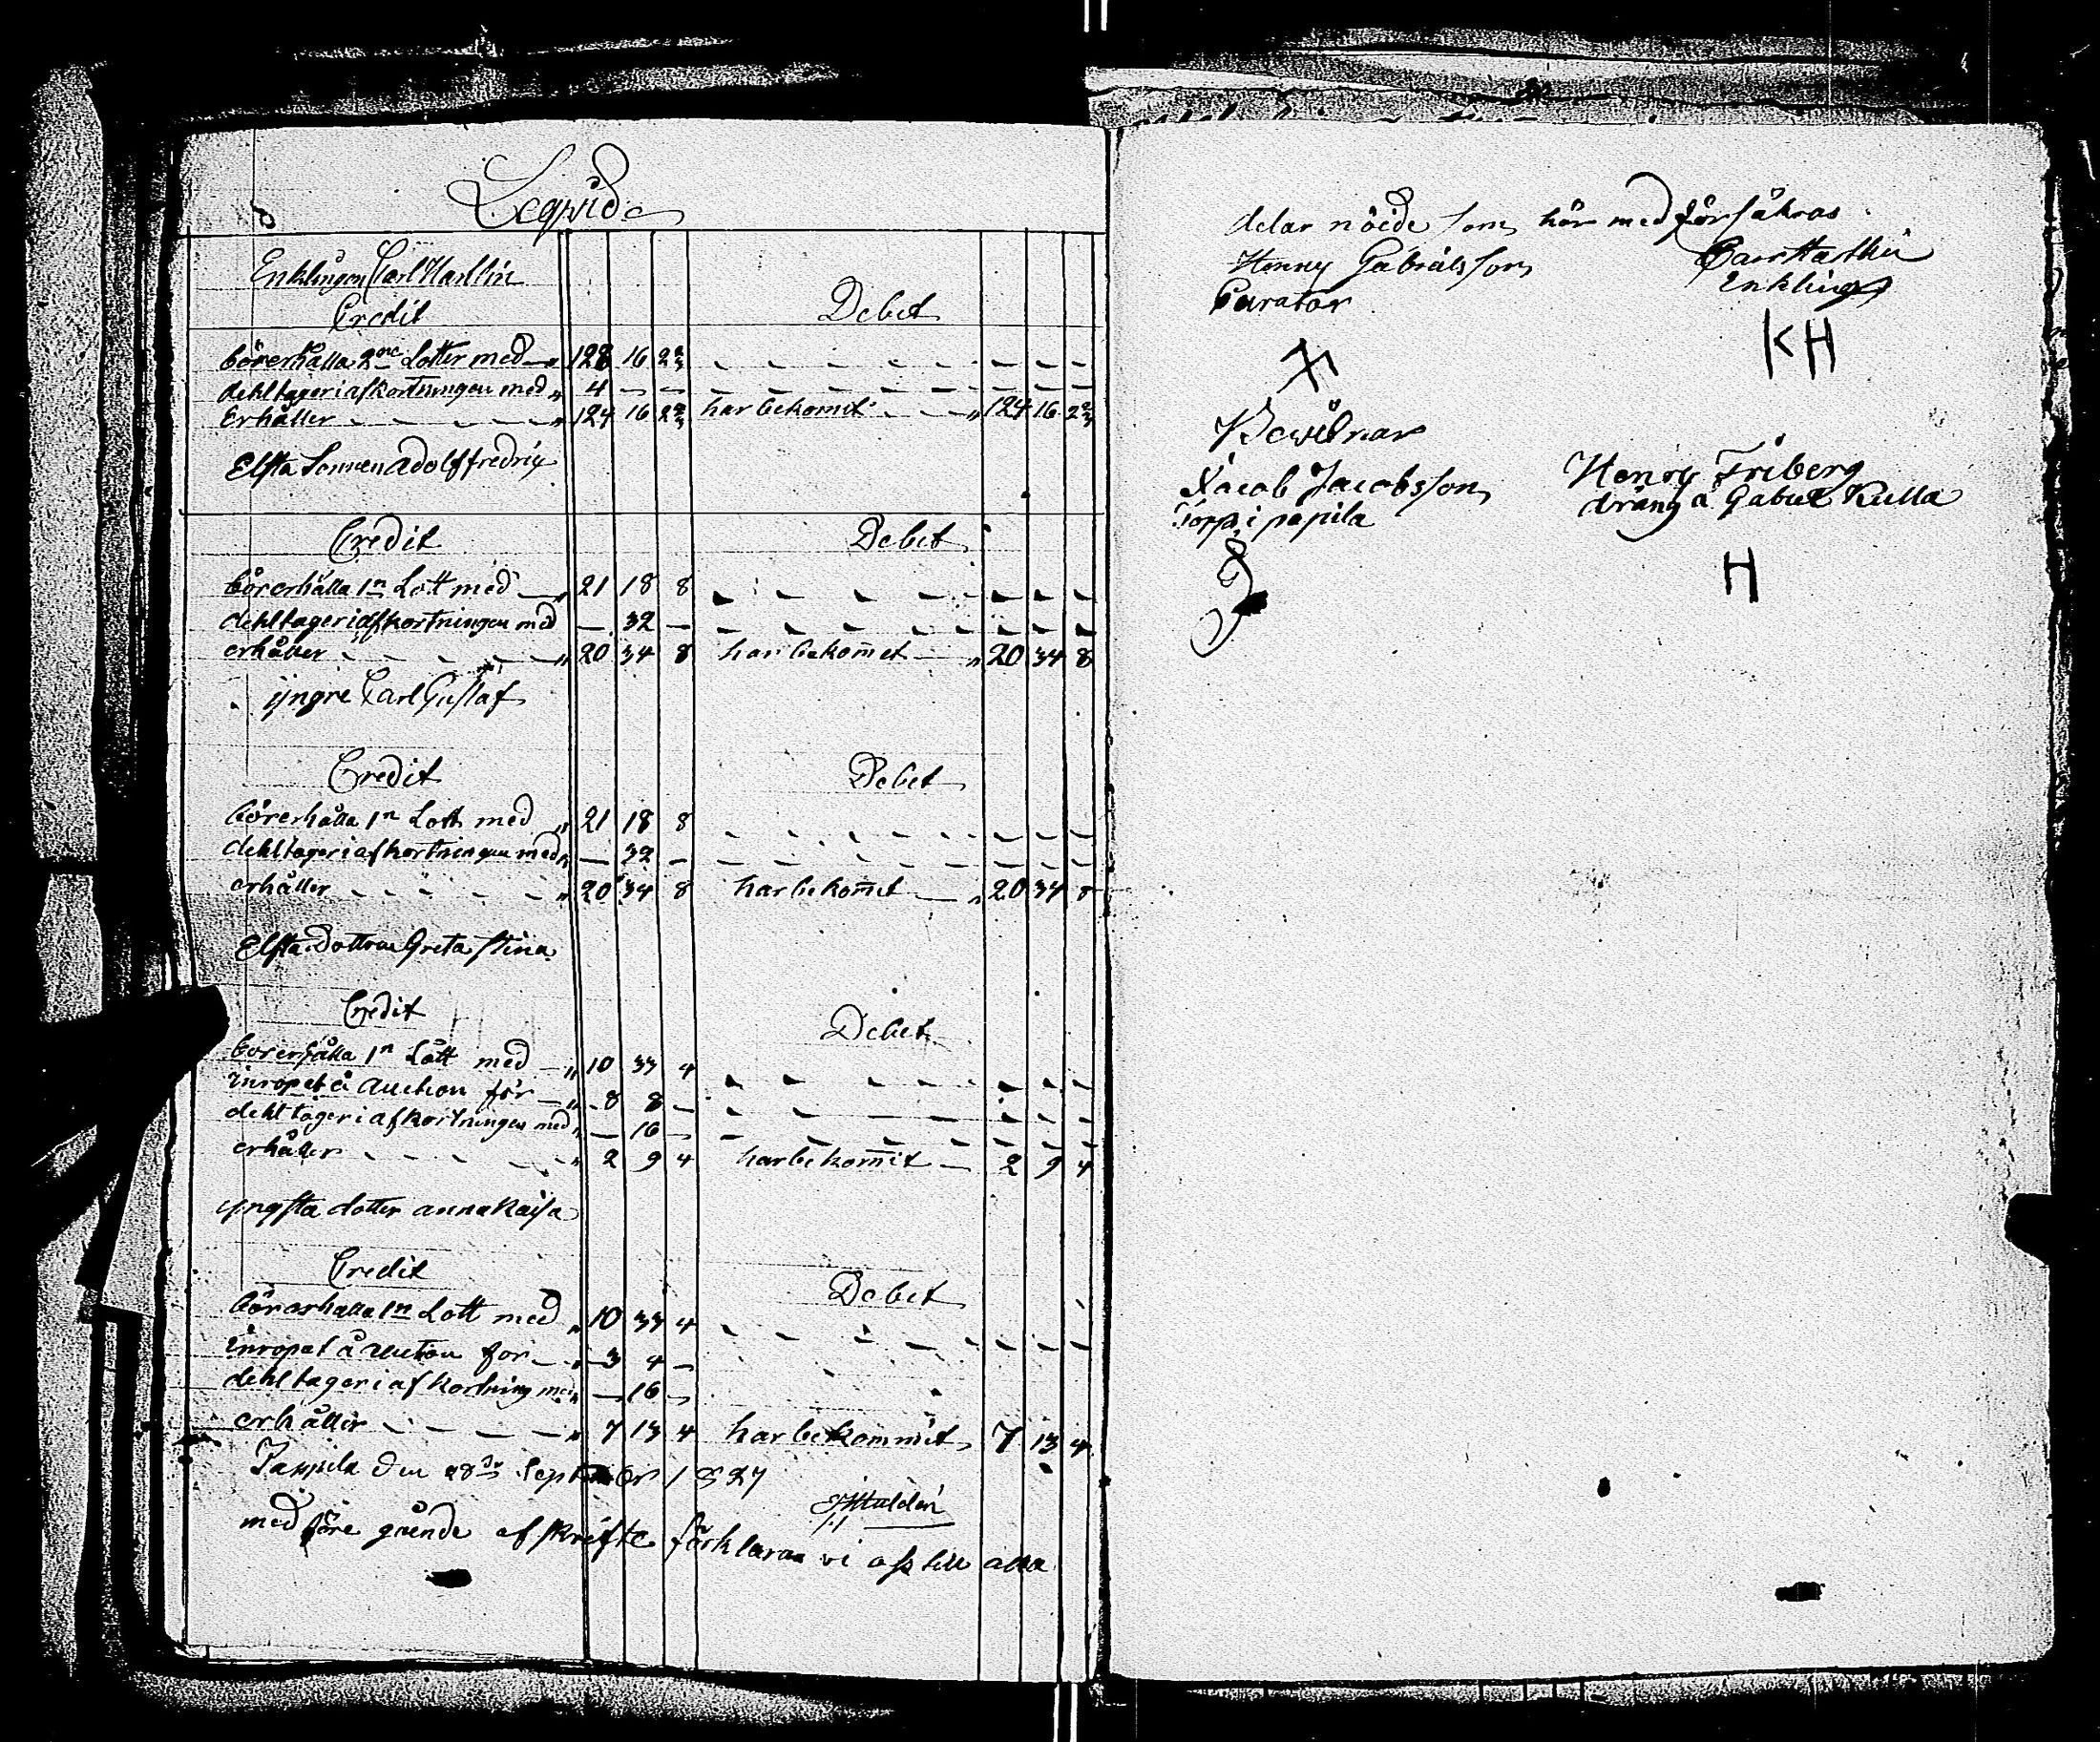 Leqvide
Enklingen Carl Harllin
Credit Debet
börerhålla 2ne Lotter med 128 16 2 2/3
dehltager i afkortningen med 4 — —
Erhåller 124 16 2 2/3 har bekomit 124 16 2 2/3
Elsta Sonnen Adolf fredrig
Credit Debet
bör erhålla 1n Lott med 21 18 8
dehltager i afkortningen med — 32 —
erhåller 20 34 8 har bekom̄et 20 34 8
yngre Carl Gustaf
Credit Debet
börerhålla 1n Lott med 21 18 8
dehltager i afkortningen med — 32 —
erhåller 20 34 8 har bekom̄et 20 34 8
Elsta Dottren Greta Stina
Credit Debet
börerhålla 1n Lott med 10 33 4
inropat å Auction för 8 8 —
dehltager i afkortningen med — 16 —
erhåller 2 9 4 har bekom̄it 2 9 4
yngsta dotter anna Kaisa
Credit Debet
börerhålla 1n Lott med 10 33 4
inropat å auction for 3 4 —
dehltager i afkortning med — 16 —
erhåller 7 13 4 har bekommit 7 13 4
den 28de September 1827
med före gående afskrifte förklaras vi oss till alla
delar nöide som här med försäkras
Henny Gabrielsson
Curator Enkling
KH
Jacob Jacobsson Henry Friberg
Torpp i papila dräng å Gabriel Kulla
H